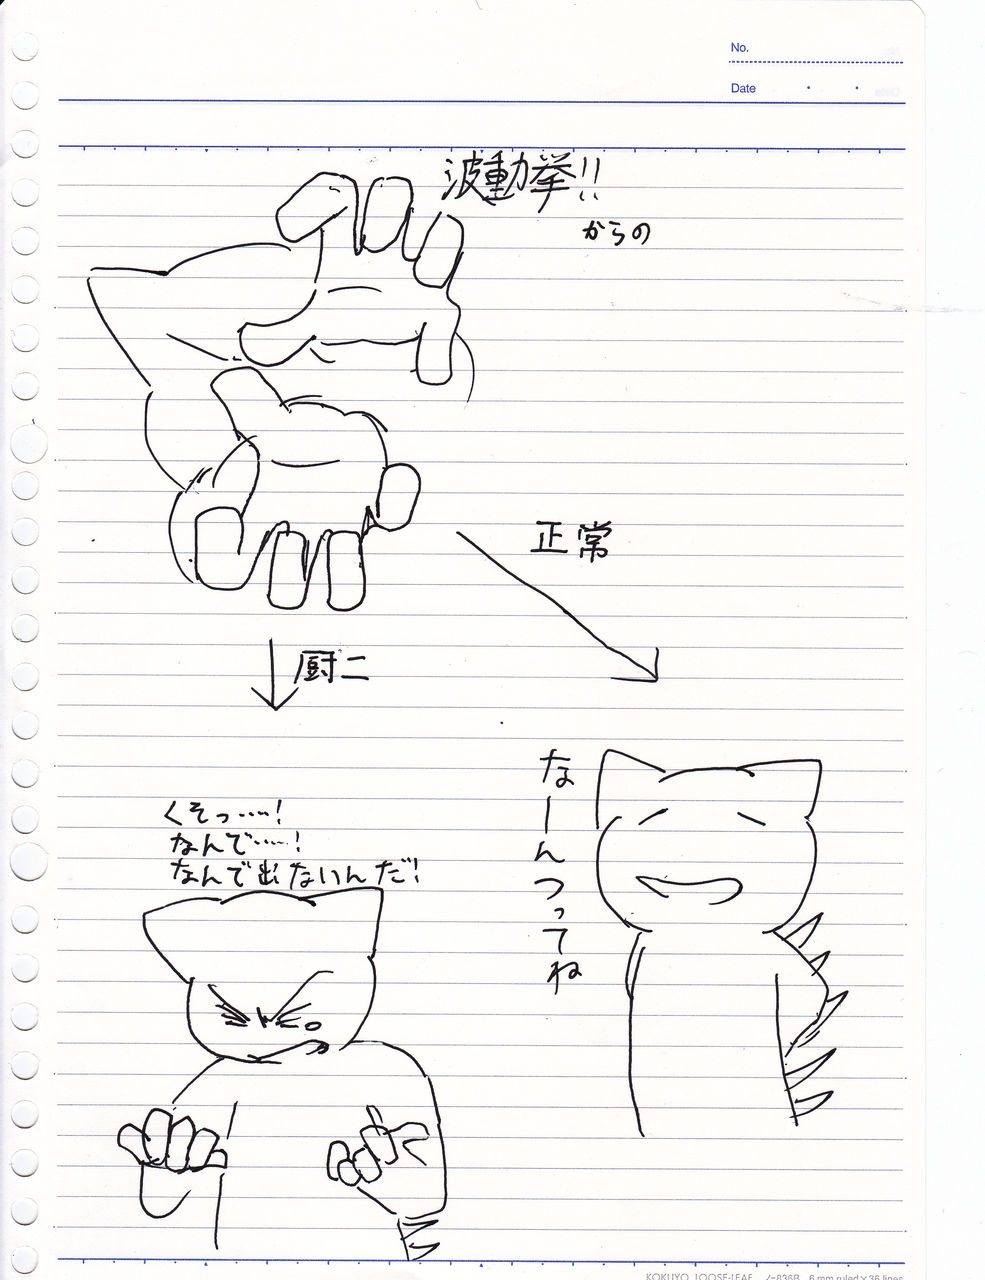 No.
Date
波動拳!!
からの
正常
厨二
なーんつってね
くそっ……!
なんで……!
なんで出ないんだ!
KOKUYO LOOSE-LEAF ノ-836B 6 mm ruled×36 lines